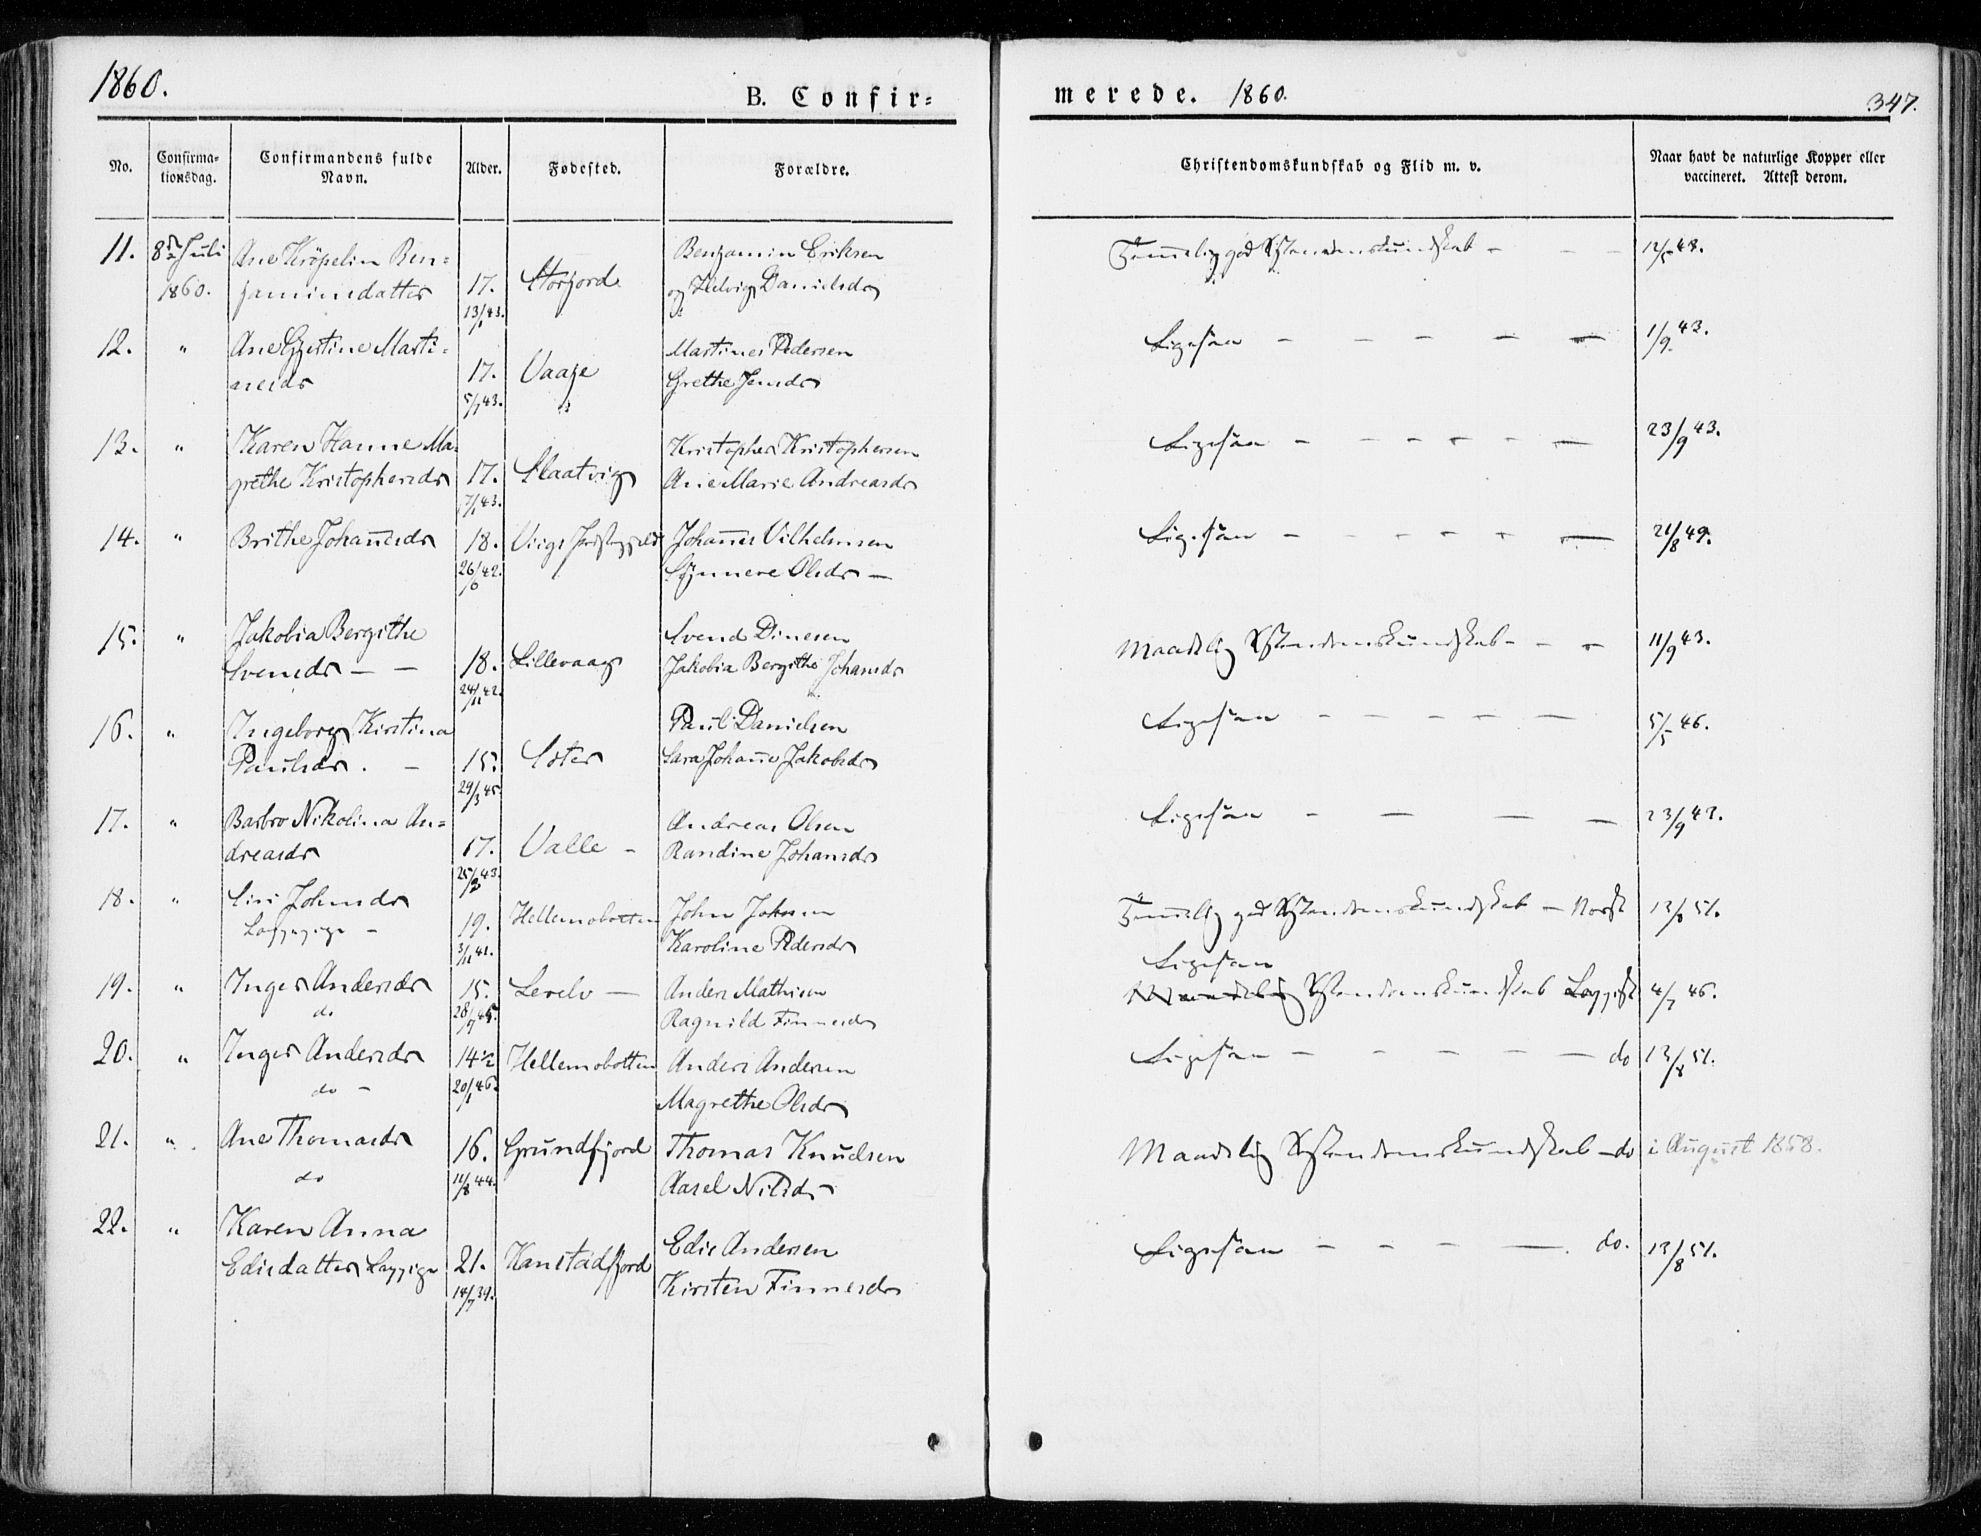 1860.
B. Confir=
merede. 1860.
347.
No.
Confirma-
tionsdag.
Confirmandens fulde
Navn.
Alder.
Fødested.
Forældre.
Christendomskundskab og Flid m. v.
Naar havt de naturlige Kopper eller
vaccineret. Attest derom.
11. 8de Juli Ane Köpelin Ben= Benjamin Eriksen
1860. jaminsdatter 17. Storfjord og Hedvig Danielsdr
13/1 43.
Temmelig god Kristendomskundskab - - - 12/5 48.
12. " Ane Gjertine Marti= Martines Pedersen
neisdr 17. Vaage Grethe Jensdr
5/1 43.
Ligesaa - - - - - 1/9 43.
13. " Karen Hanne Ma- Kristopher Kristophersen
grethe Kristophersdr 17. Slaatvig Ane Marie Andreasdr
7/1 43.
Ligesaa - - - - - 23/9 43.
14. " Brithe Johannesdr 18. Viigs Præstegjeld Johannes Vilhelmsen
26/6 42. Synnere Olsdr -
Ligesaa - - - - - 21/8 49.
15. " Jakobia Bergithe Svend Dinesen
Svensdr - - 18. Lillevaag Jakobia Bergithe Johansdr
24/11 42.
Maadelig Kristendomskundskab - - - 11/9 43.
16. " Ingeborg Kirstina Paul Danielsen
Paulsdr. - 15. Ster Sara Johanne Jakobsdr
29/3 45.
Ligesaa - - - - - 5/5 46.
17. " Barbro Nikolina An= Andreas Olsen
dreasdr 17. Valle - Randine Johansdr
25/2 43.
Ligesaa - - - - 23/9 43.
18. " Siri Johnsdr 19. Hellemobotten John Johnsen
Lappepige - 3/11 41. Karoline Pedersdr
Temmelig god Kristendomskundskab - Norsk 13/8 51.
Ligesaa
19. " Inger Andersdr 15. Levelv - Anders Mathisen
do 28/9 45. Ragnild Finnesdr
Maadelig Kristendomskundskab Lappisk 4/7 46.
20. " Inger Andersdr 14½ Hellemobotten Anders Andersen
do - 20/1 46. Magrethe Olsdr
Ligesaa - - - - - do 13/8 51.
21. " Ane Thomasdr 16. Grundfjord Thomas Knudsen
do 11/8 44. Aasel Nilsdr
Maadelig Kristendomskundskab - do i August 1858.
22. " Karen Anna Edis Andersen
Edisdatter Lappige 21. Kanstadfjord Kirsten Finnesdr
14/7 39.
Ligesaa - - - - do. 13/8 51.